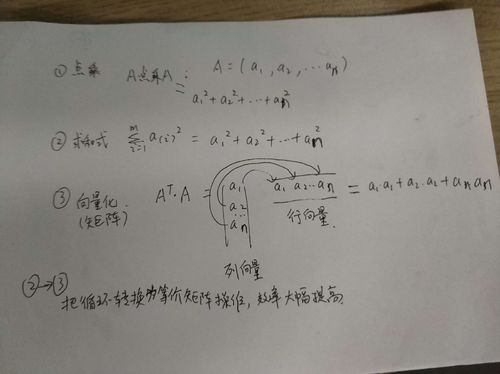 ① 点乘 A点乘A : A = (a₁, a₂, ⋯ aₙ)
= a₁² + a₂² + ⋯ + aₙ²
② 求和式 ∑ᵢ₌₁ᵐ a(i)² = a₁² + a₂² + ⋯ + aₙ²
③ 向量化 (矩阵) Aᵀ·A = a₁ a₂ ⋯ aₙ a₁ a₂ ⋯ aₙ = a₁·a₁ + a₂·a₂ + aₙ aₙ
行向量.
列向量
②→③
把循环转换为等价矩阵操作, 效率大幅提高.